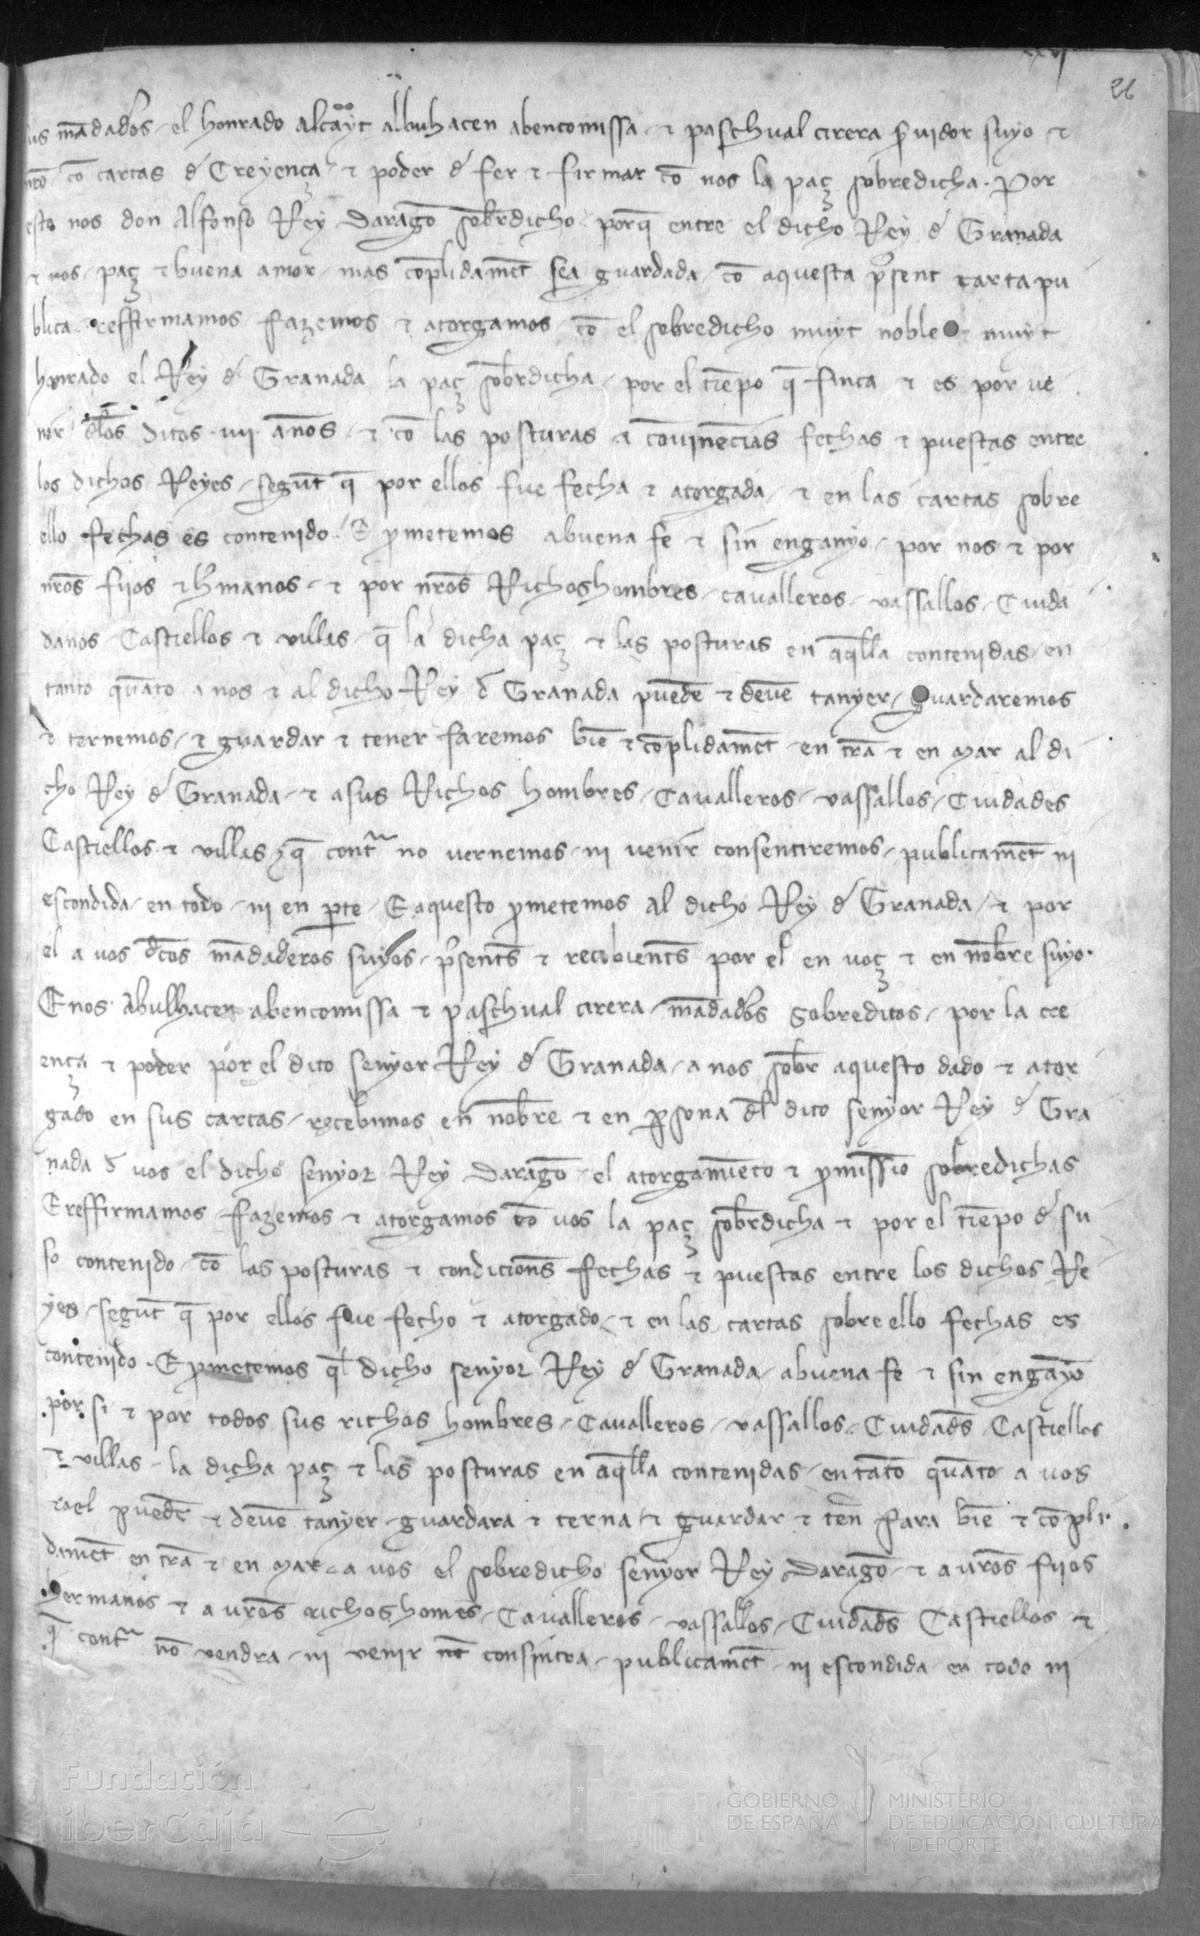 xxvj
26
sus mãdadores el honrado Alcayt Albuhacen abencomissa et paschual cirera s͂uidor suyo et
cõ cartas d' Creyença et poder d' fer et firmar cõ nos la paç sobredicha. Por
esto nos don Alfonso Rey Daragõ sobrdicho porq̃ entre el dicho Rey d' Granada
et nos paç et buena amor mas cõplidamẽt sea guardada cõ aquesta p̃sent carta pu
blica reffirmamos fazemos et atorgamos cõ el sobredicho muyt noble et muyt
honrado el Rey d' Granada la paç sobrdicha por el tiẽpo q̃ finca et es por ve
nir dlos ditos .iiii. anños et cõ las posturas et cõuinẽcias fechas et puestas entre
los dichos Reyes segũt q̃ por ellos fue fecha et atorgada et en las cartas sobre
ello fechas es contenido. E p̃metemos abuena fe et sin enganyo por nos et por
nr̃os fijos et hr̃manos et por nr̃os Richoshombres cavalleros vassallos Ciuda
danos Castiellos et villas q̃ la dicha paç et las posturas en aq̃lla contenidas en
tanto quãto a nos et al dicho Rey d' Granada puedẽ et deuẽ tanyer guardaremos
et ternemos et guardar et tener faremos biẽ et cõplidamẽt en tr̃a et en mar al di
cho Rey d' Granada et asus Richos hombres Cavalleros vassallos Ciudades
Castiellos et villas q̃ contra no vernemos ni venir consentiremos publicamẽt ni
escondida en todo ni en p̱te E aquesto p̃metemos al dicho Rey d' Granada et por
el a vos dc̃os mãdaderos suyos p̃sentes et recibientes por el en voç et en nõbre suyo.
E nos Abulhacen abencomissa et paschual cirera mãdadores sobreditos por la cre
ença et poder por el dito senyor Rey d' Granada a nos sobr aquesto dado et ator
gado en sus cartas recebimos en nõbre et en p̱sona dl dito senyor Rey d' Gra
nada d' vos el dicho senyor Rey Daragõ el atorgamiẽto et p̃missiõ sobredichas
E reffirmamos fazemos et atorgamos cõ vos la paç sobrdicha et por el tiẽpo d' su
so contenido cõ las posturas et condiciones fechas et puestas entre los dichos Re
yes segũt q̃ por ellos fue fecho et atorgado et en las cartas sobre ello fechas es
contenido. E p̃metemos q̃l dicho senyor Rey d' Granada abuena fe et sin engãyo
por si et por todos sus richos hombres Cavalleros vassallos Ciudades Castiellos
et villas la dicha paç et las posturas en aq̃lla contenidas en tãto quãto a vos
et ael puedẽ et deuẽ tanyer guardara et terna et guardar et ten̄ fara biẽ et cõpli
damẽt en tr̃a et en mar a vos el sobredicho senyor Rey Daragõ et a vr̃os fijos
hermanos et a vr̃os richos homes Cavalleros vassallos Ciudades Castiellos et
q̃ contra nõ vendra ni venir nõ consintra publicamẽt ni escondida en todo ni
Fundación
iberCaja
GOBIERNO
DE ESPAÑA
MINISTERIO
DE EDUCACIÓN, CULTURA
Y DEPORTE